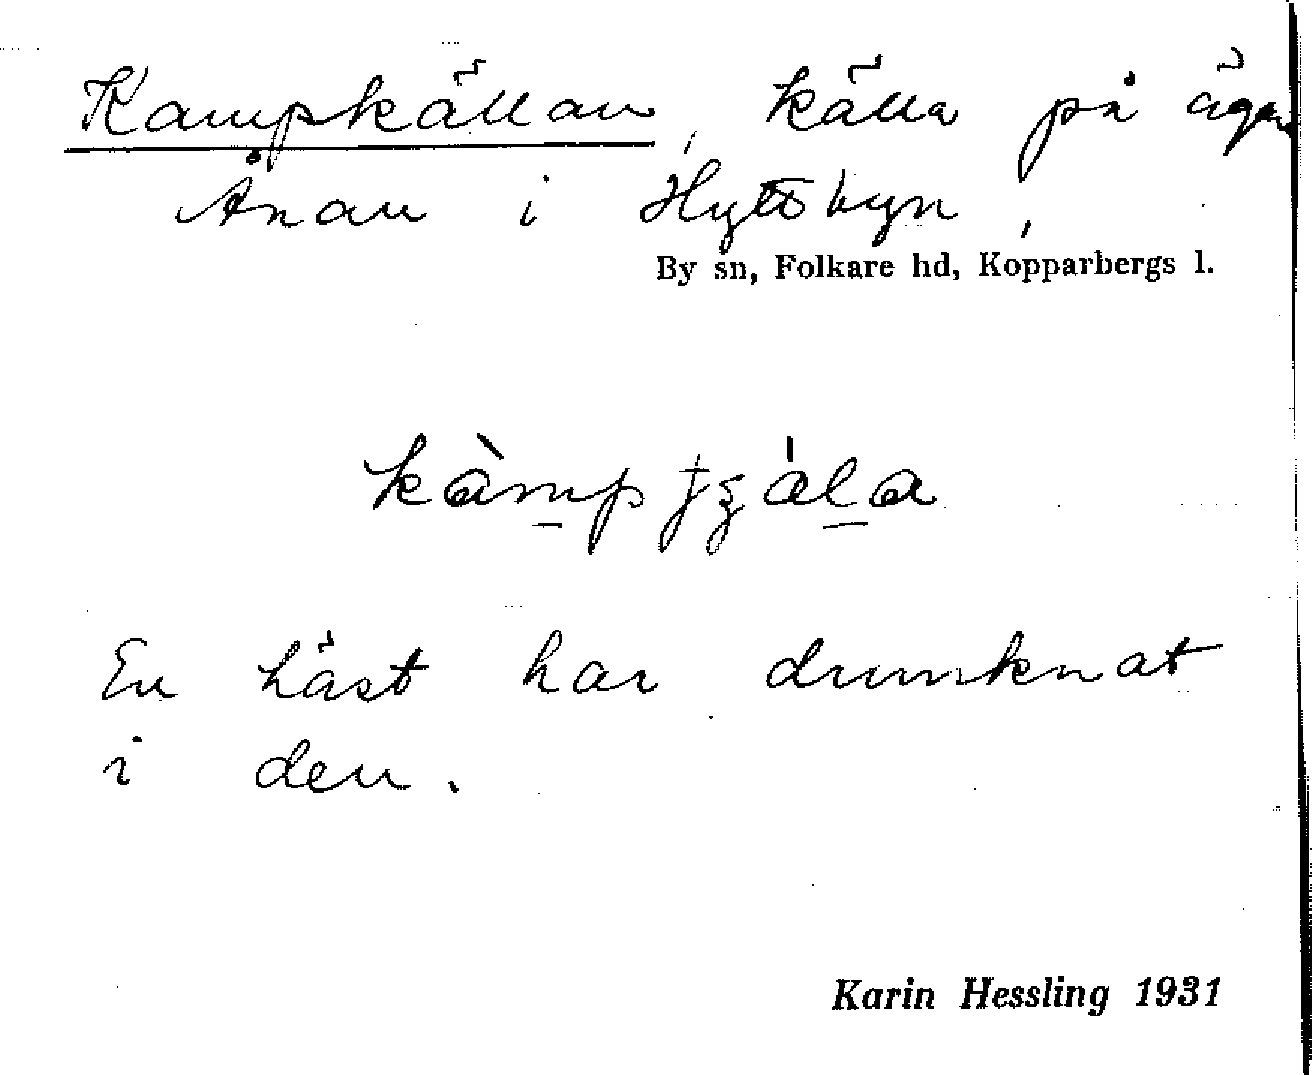 Kampkällan, källa på ägan
Ånan i Hyttbyn,
By sn, Folkare hd, Kopparbergs l.
En häst har drunknat
i den.
Karin Hessling 1931